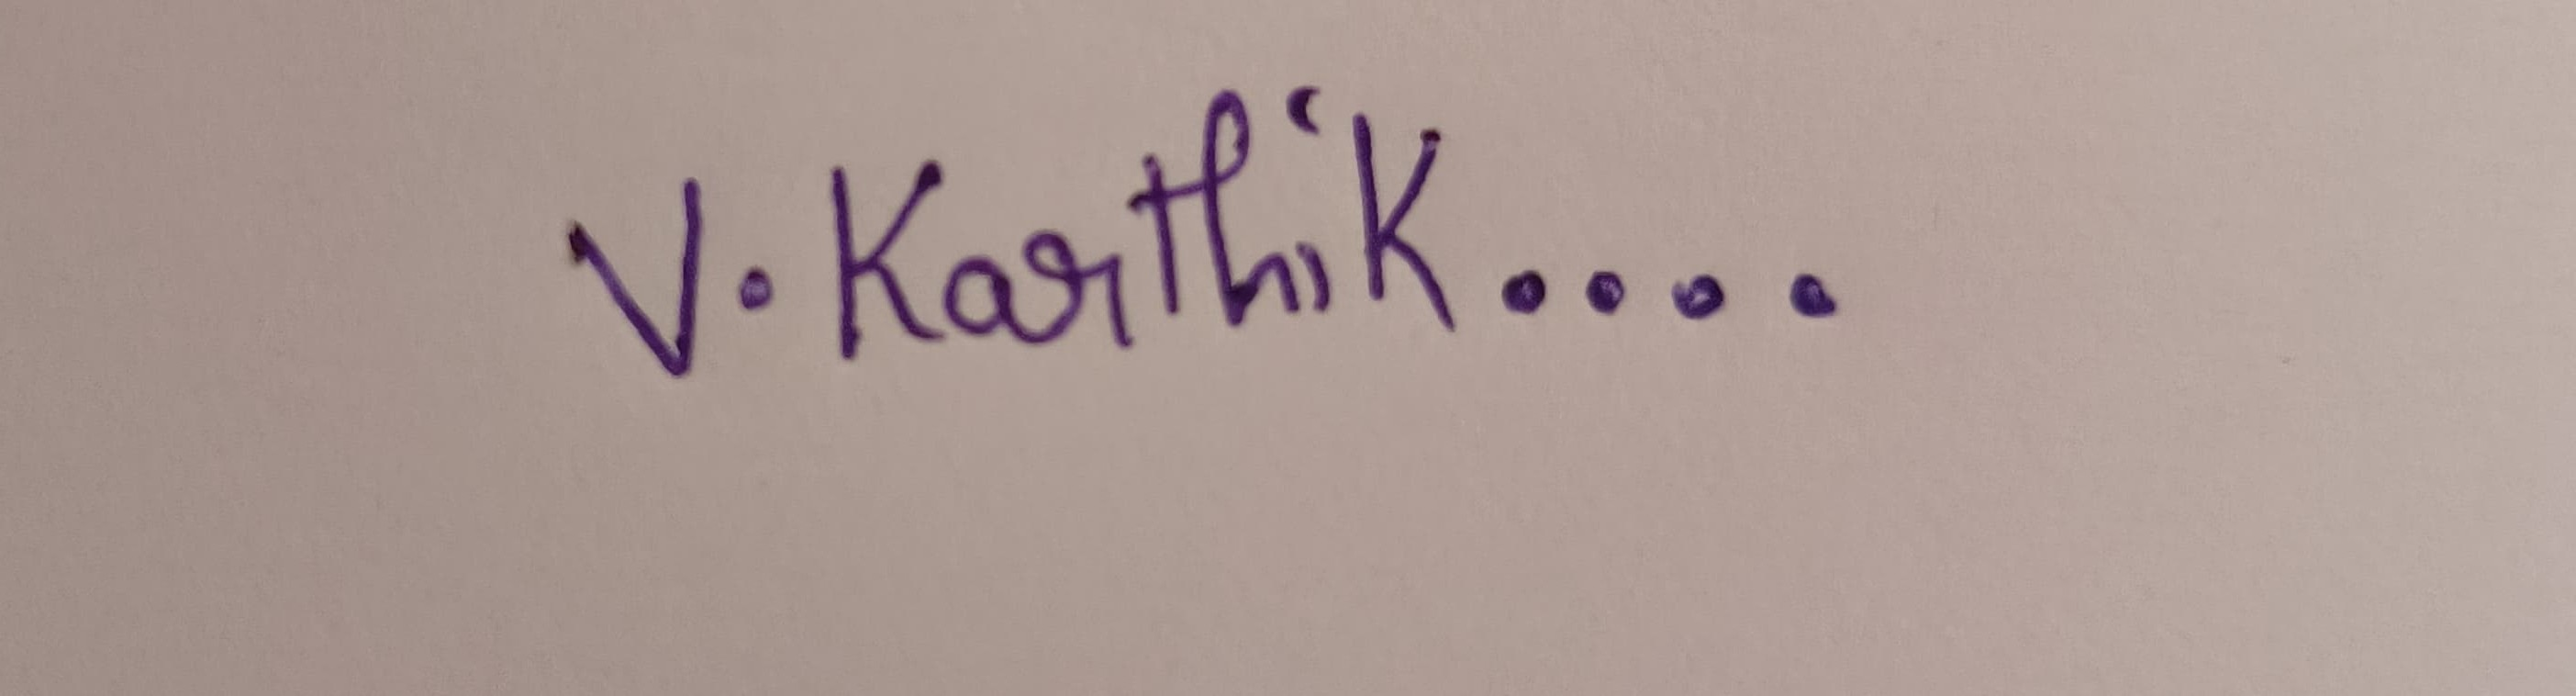 V. Karthik....